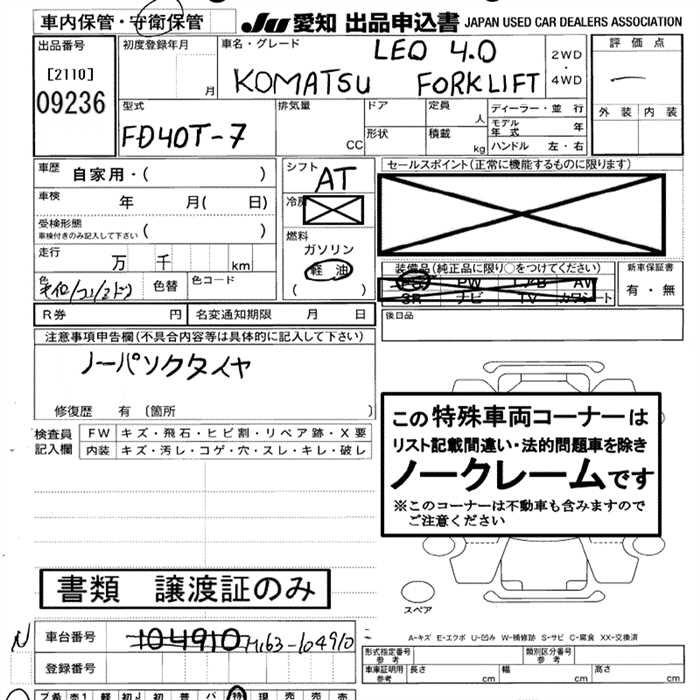 車内保管・守衛保管
JU 愛知 出品申込書 JAPAN USED CAR DEALERS ASSOCIATION
出品番号
[2110]
09236
初度登録年月
月
車名・グレード
LEO 4.0
KOMATSU FORKLIFT
2WD
・
4WD
評価点
外装 内装
型式
FD40T-7
排気量
CC
ドア
形状
定員
人
積載
kg
ディーラー・並行
モデル年式 年
ハンドル 左・右
車歴
自家用・( )
車検 年 月( 日)
受検形態
車検付きのみ記入して下さい ( )
走行
万 千 km
色 色替 色コード
シフト
AT
冷房
燃料
ガソリン
軽油
( )
セールスポイント(正常に機能するものに限ります)
装備品(純正品に限り○をつけてください)
PS PW エアB AW
SR ナビ TV カワシート
新車保証書
有・無
R券 円 名変通知期限 月 日
後日品
注意事項申告欄(不具合内容等は具体的に記入して下さい)
ノーパンクタイヤ
修復歴 有〔箇所 〕
検査員
記入欄
FW キズ・飛石・ヒビ割・リペア跡・X要
内装 キズ・汚レ・コゲ・穴・スレ・キレ・破レ
この特殊車両コーナーは
リスト記載間違い・法的問題車を除き
ノークレームです
※このコーナーは不動車も含みますので
ご注意ください
スペア
書類 譲渡証のみ
N 車台番号 104910 M163-104910
登録番号
A-キズ E-エクボ U-凹み W-補修跡 S-サビ C-腐食 XX-交換済
形式指定番号
参考
類別区分番号
参考
車庫証明用
参考
長さ cm 幅 cm 高さ cm